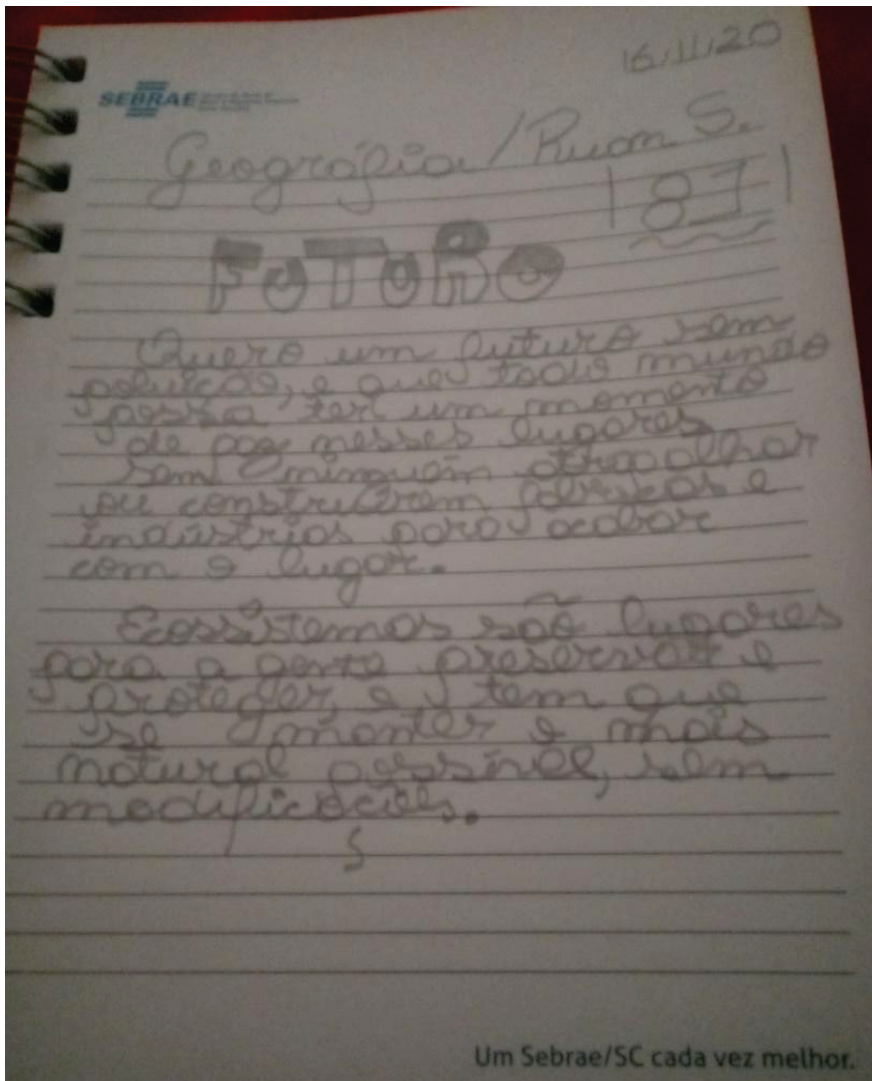 16/11/20
SEBRAE
Geográfia / Ruan S.
871
FuTuRo
Quero um futuro sem
poluição, e que todo mundo
possa ter um momento
de paz nesses lugares
sem ninguém atrapalhar
ou construirem fabricas e
indústrias para acabar
com o lugar.
Ecossistemas são lugares
para a gente preservar e
proteger, e tem que
se manter o mais
natural possível, sem
modificações.
Um Sebrae/SC cada vez melhor.